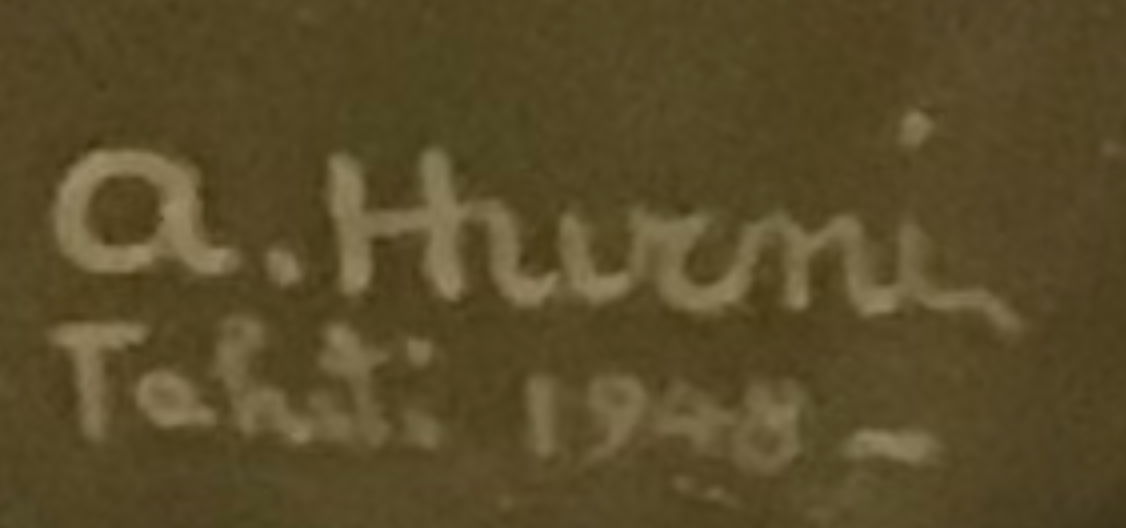 A. Hurni
Tahiti 1948 –